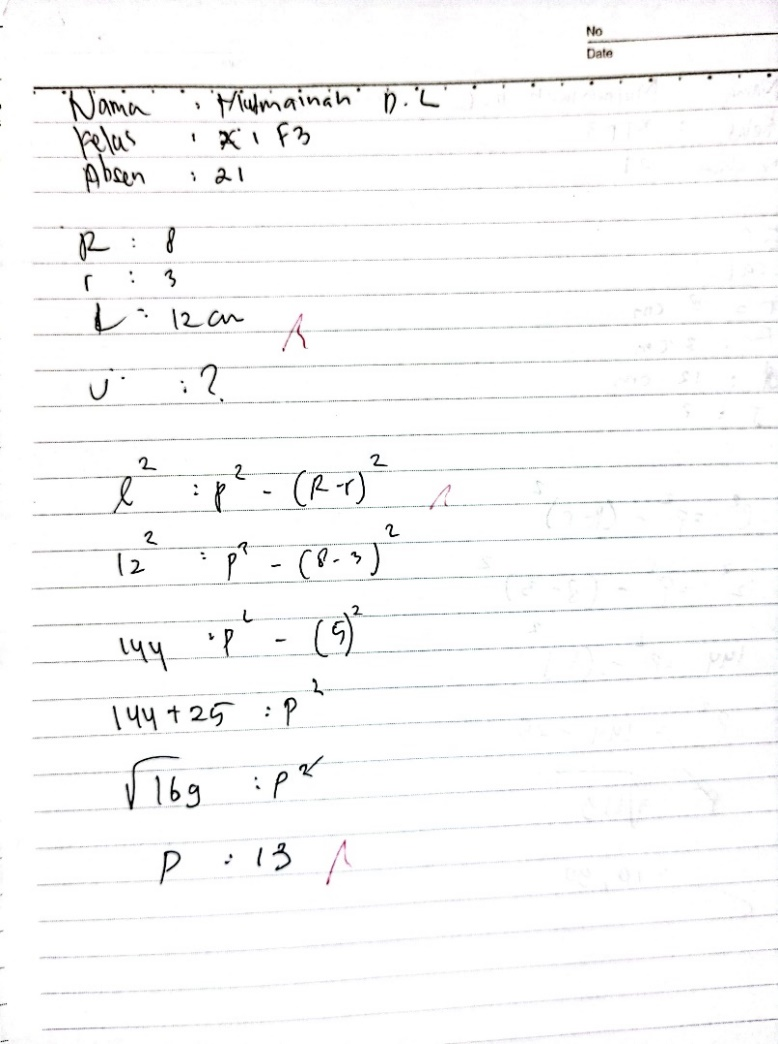 No
Date
Nama : Mutmainah D.L
Kelas : XI F3
Absen : 21
R : 8
r : 3
L : 12 cm
U : ?
l² : p² - (R-r)²
12² : p² - (8-3)²
144 : p² - (5)²
144 + 25 : p²
√169 : p²
p : 13